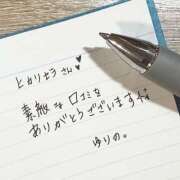 とかりせうさん♥
素敵な口コミを
ありがとうございます
ゆりの。